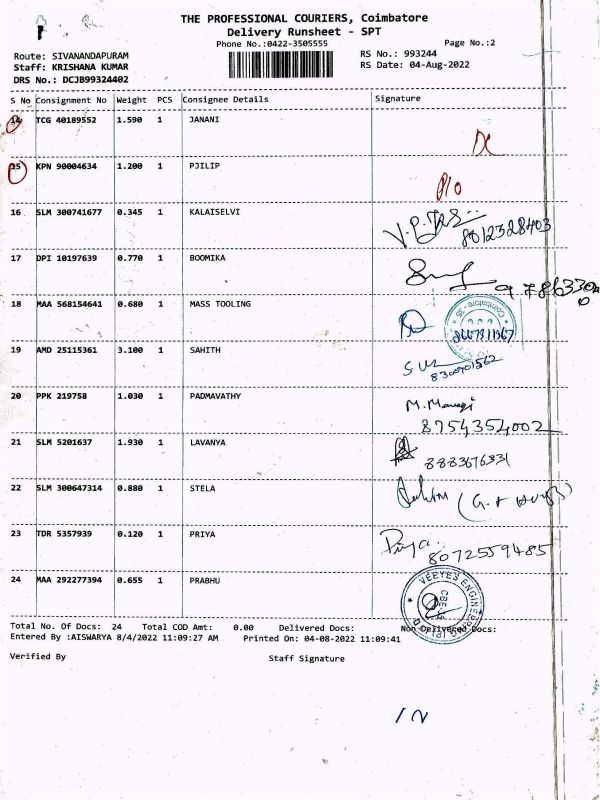 THE PROFESSIONAL COURIERS, Coimbatore
Delivery Runsheet - SPT
Phone No.:0422-3505555 Page No.:2
Route: SIVANANDAPURAM RS No.: 993244
Staff: KRISHANA KUMAR RS Date: 04-Aug-2022
DRS No.: DCJB99324402
S No Consignment No Weight PCS Consignee Details Signature
14 TCG 40189552 1.590 1 JANANI
15 KPN 90004634 1.200 1 PJILIP
16 SLM 300741677 0.345 1 KALAISELVI
8012328403
17 DPI 10197639 0.770 1 BOOMIKA
18 MAA 568154641 0.680 1 MASS TOOLING
19 AMD 25115361 3.100 1 SAHITH
8300701562
20 PPK 219758 1.030 1 PADMAVATHY
8754354002
21 SLM 5201637 1.930 1 LAVANYA
8883676331
22 SLM 300647314 0.880 1 STELA
23 TDR 5357939 0.120 1 PRIYA Priya
8072559485
24 MAA 292277394 0.655 1 PRABHU
Total No. Of Docs: 24 Total COD Amt: 0.00 Delivered Docs: Non-Delivered Docs:
Entered By :AISWARYA 8/4/2022 11:09:27 AM Printed On: 04-08-2022 11:09:41
Verified By Staff Signature